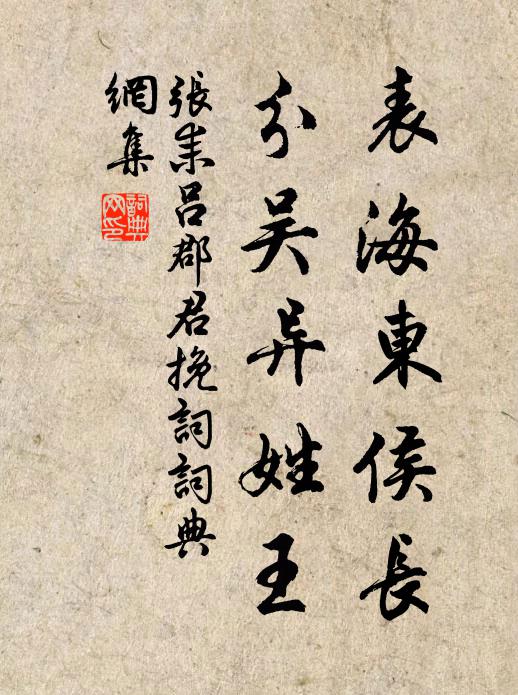 表海東侯長
分吴异姓王
張耒吕郡君挽詞詞典
網集
詞典网印